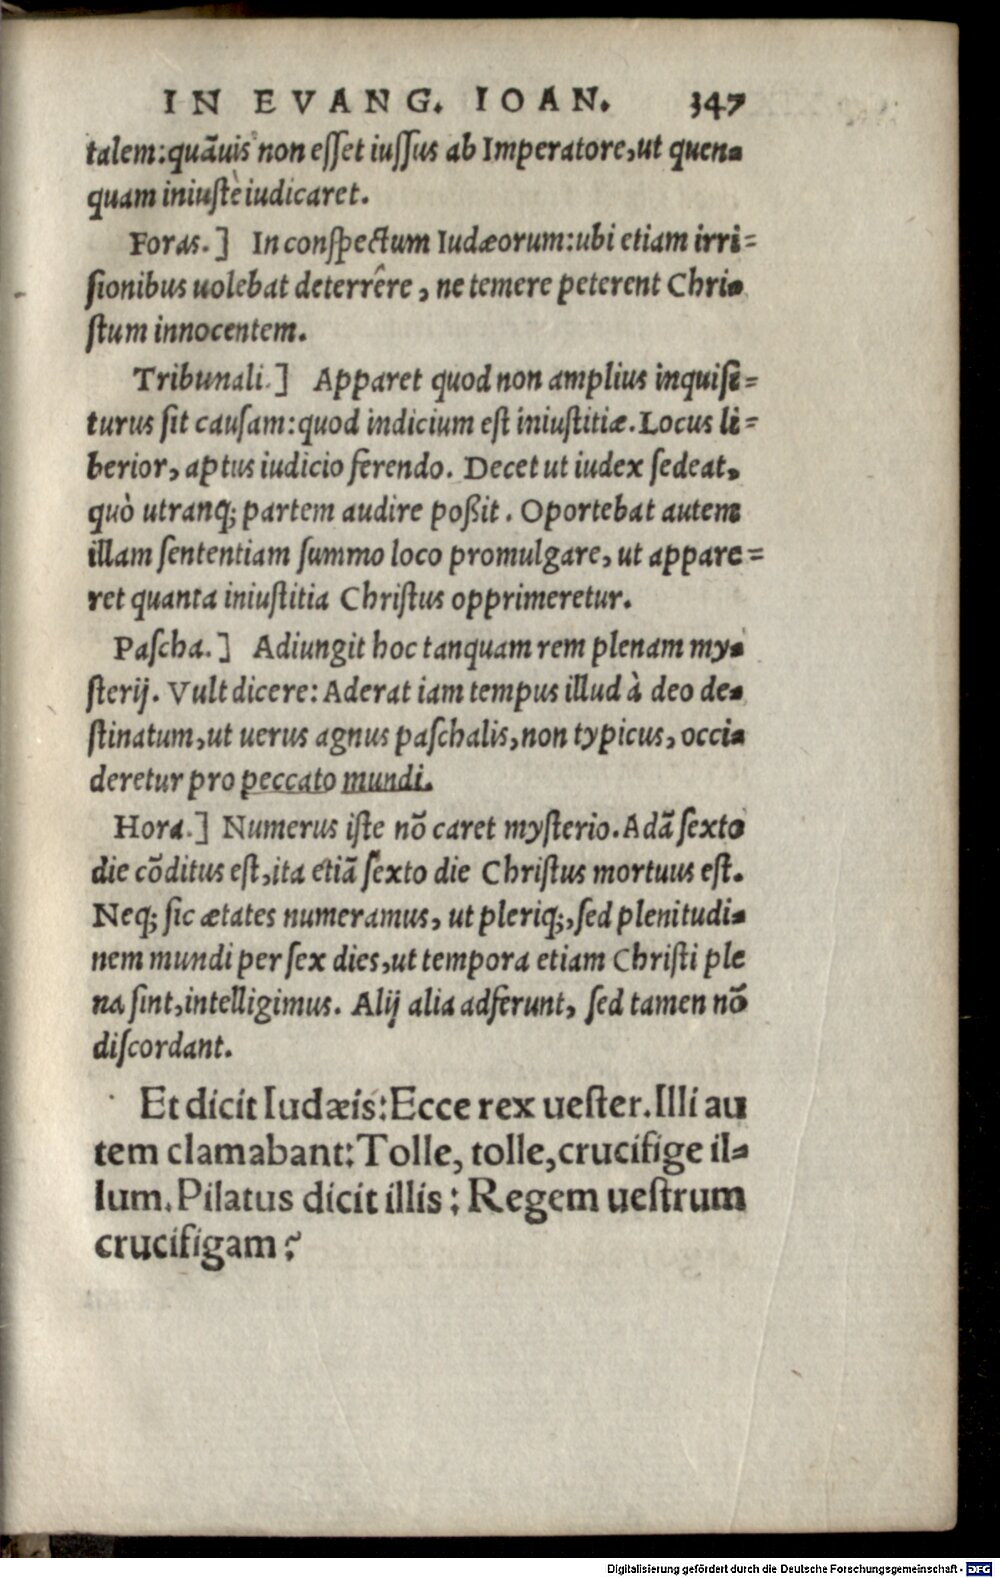 IN EVANG. IOAN. 347
talem: quãuis non esset iussus ab Imperatore, ut quen-
quam iniustè iudicaret.
Foras.] In conspectum Iudæorum: ubi etiam irri-
sionibus uolebat deterrêre, ne temere peterent Chri-
stum innocentem.
Tribunali.] Apparet quod non amplius inquisi-
turus sit causam: quod indicium est iniustitiæ. Locus li-
berior, aptus iudicio ferendo. Decet ut iudex sedeat,
quò utranq; partem audire poßit. Oportebat autem
illam sententiam summo loco promulgare, ut appare-
ret quanta iniustitia Christus opprimeretur.
Pascha.] Adiungit hoc tanquam rem plenam my-
sterij. Vult dicere: Aderat iam tempus illud à deo de-
stinatum, ut uerus agnus paschalis, non typicus, occi-
deretur pro peccato mundi.
Hora.] Numerus iste nõ caret mysterio. Adã sexto
die cõditus est, ita etiã sexto die Christus mortuus est.
Neq; sic ætates numeramus, ut pleriq;, sed plenitudi-
nem mundi per sex dies, ut tempora etiam Christi ple
na sint, intelligimus. Alij alia adferunt, sed tamen nõ
discordant.
Et dicit Iudæis: Ecce rex uester. Illi au
tem clamabant: Tolle, tolle, crucifige il-
lum. Pilatus dicit illis: Regem uestrum
crucifigam?
Digitalisierung gefördert durch die Deutsche Forschungsgemeinschaft - DFG